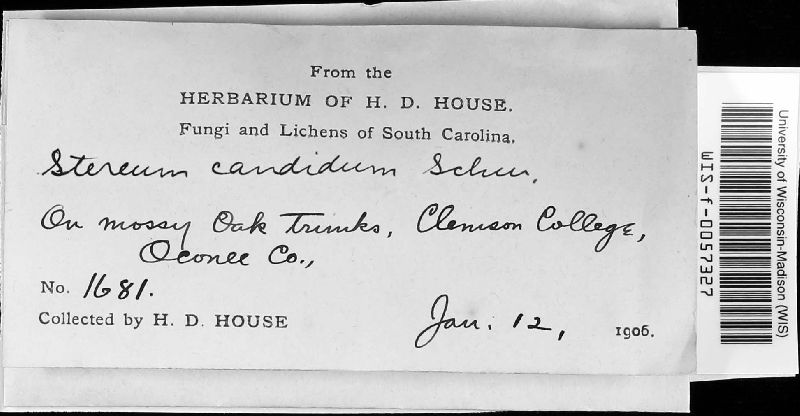 From the
HERBARIUM OF H. D. HOUSE.
Fungi and Lichens of South Carolina.
Stereum candidum Schw.
On mossy Oak Trunks, Clemson College,
Oconee Co.,
No. 1681.
Collected by H. D. HOUSE
Jan. 12, 1906.
University of Wisconsin-Madison (WIS)
WIS-f-0057327